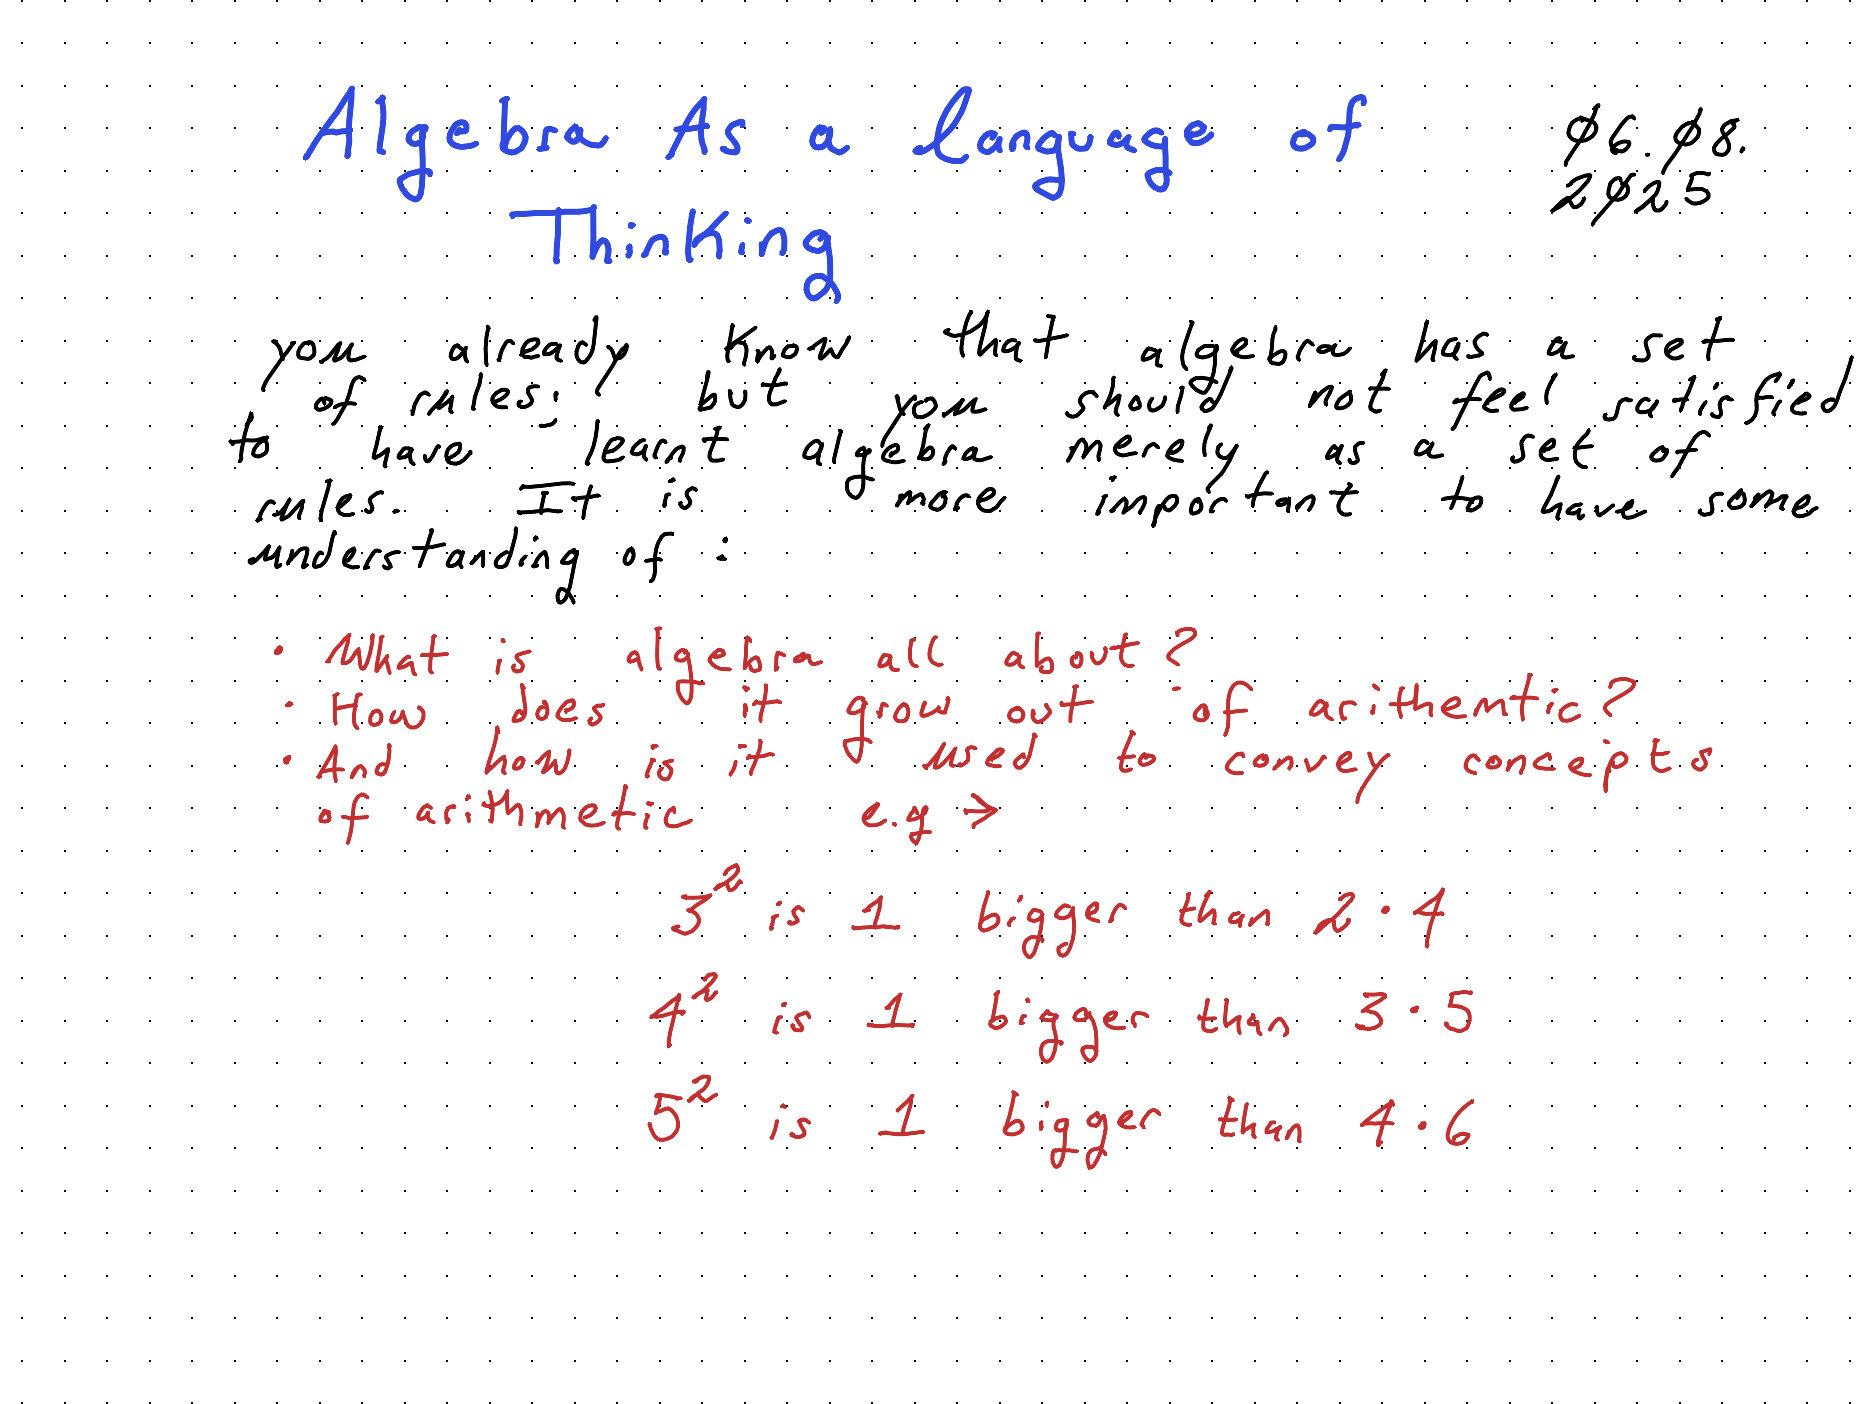 Algebra As a language of
Thinking
Ø6.Ø8.
2Ø25
you already know that algebra has a set
of rules; but you should not feel satisfied
to have learnt algebra merely as a set of
rules. It is more important to have some
understanding of :
· What is algebra all about?
· How does it grow out of arithemtic?
· And how is it used to convey concepts
of arithmetic e.g →
3² is 1 bigger than 2 · 4
4² is 1 bigger than 3 · 5
5² is 1 bigger than 4 · 6